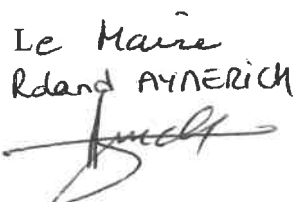 Le Maire
Roland AYMERICH